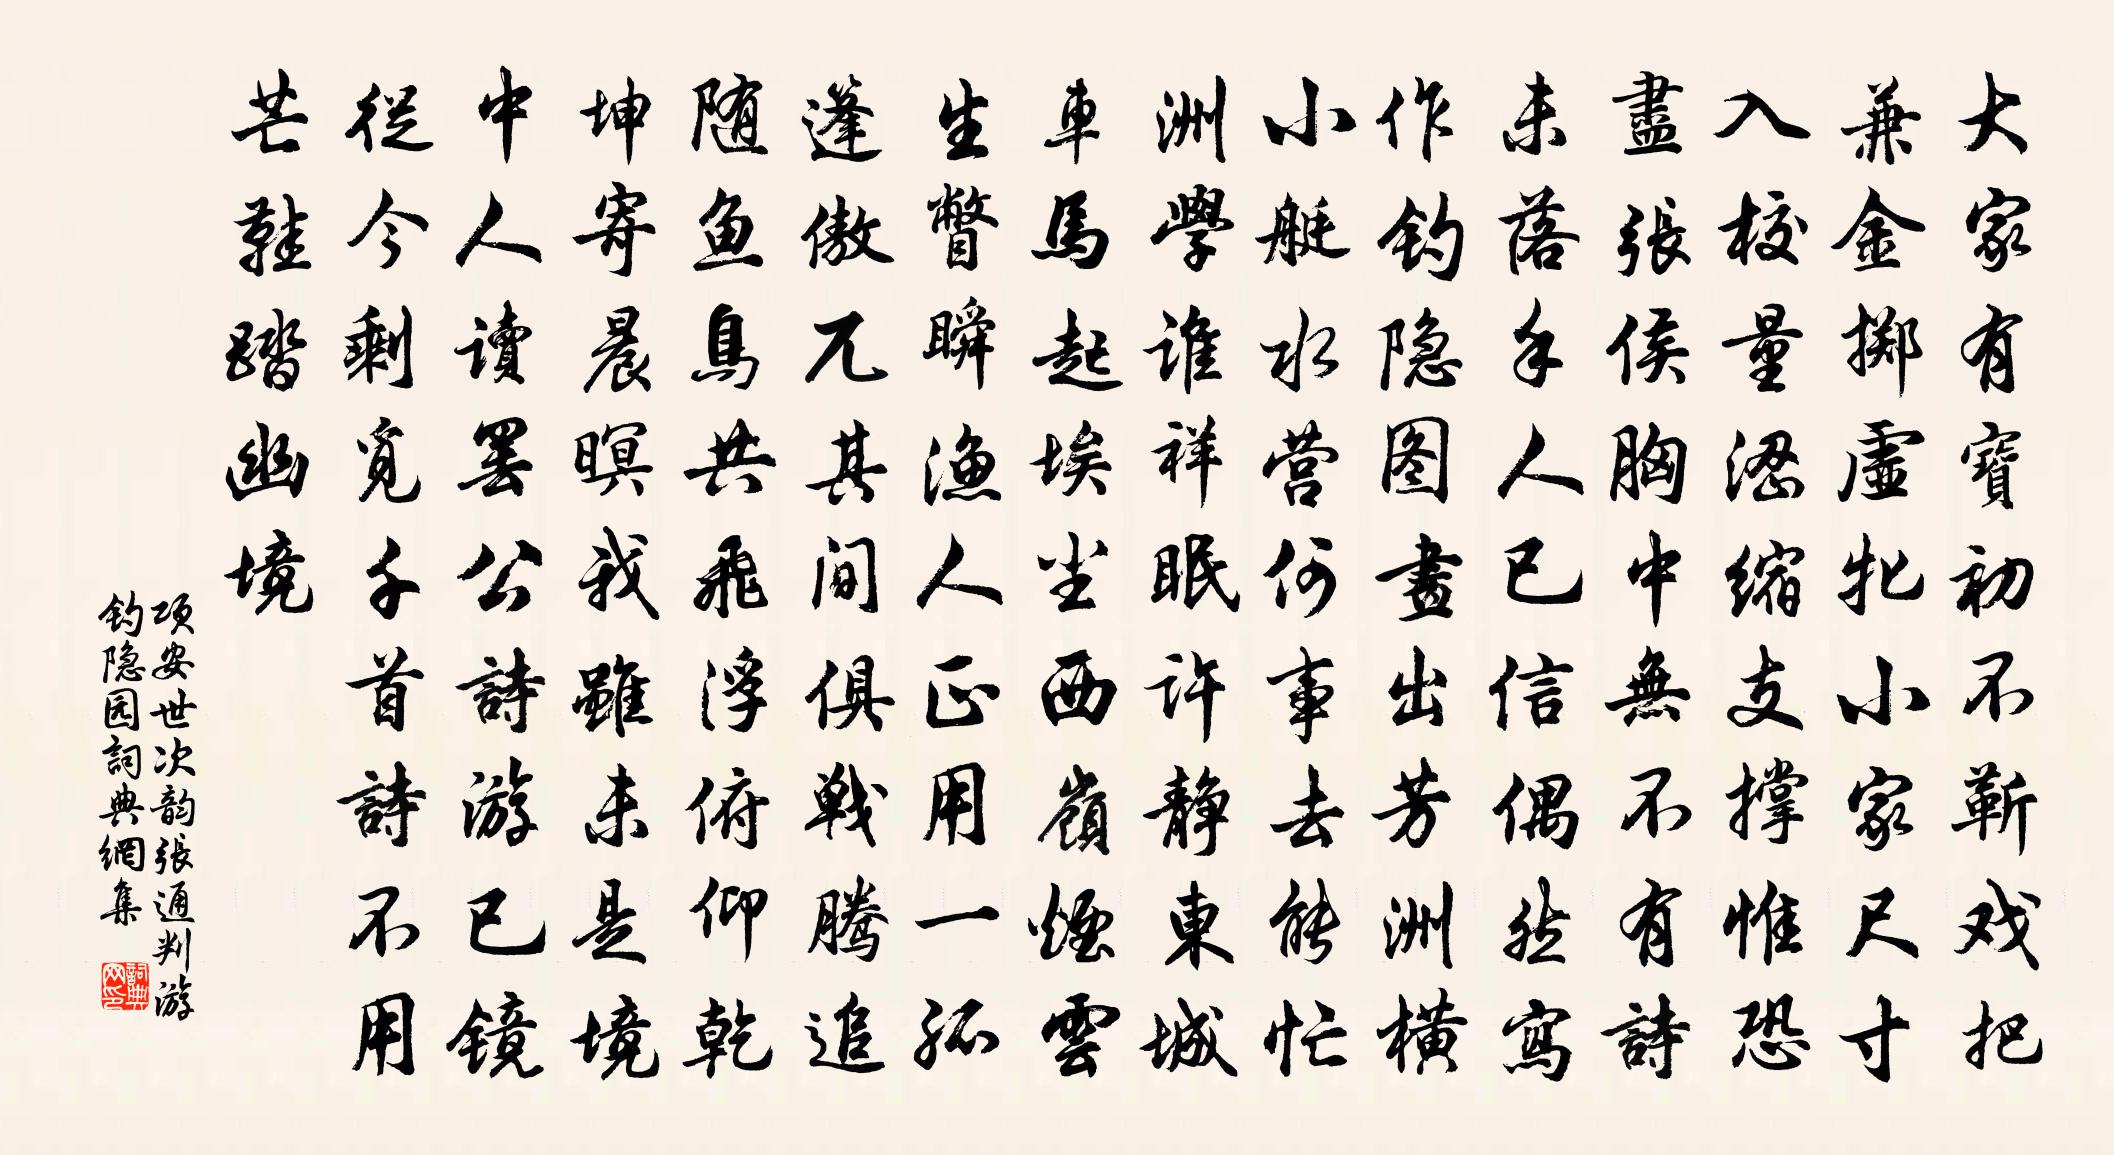 大家有寶初不靳戏把
兼金掷虛牝小家尺寸
入校量澀缩支撑惟恐
盡張侯胸中無不有詩
未落手人已信偶然寫
作钓隐图畫出芳洲橫
小艇水营何事去能忙
洲學谁祥眠许静東城
車馬起埃坐西嶺煙雲
生瞥瞬漁人正用一孤
蓬傲兀其间俱戰腾追
随鱼鳥共飛浮俯仰乾
坤寄晨暝我雖未是境
中人读罢公詩游已镜
従今剩覓千首詩不用
芒鞋踏幽境
项安世次韵張通判游
钓隐园詞典網集
詞典网印